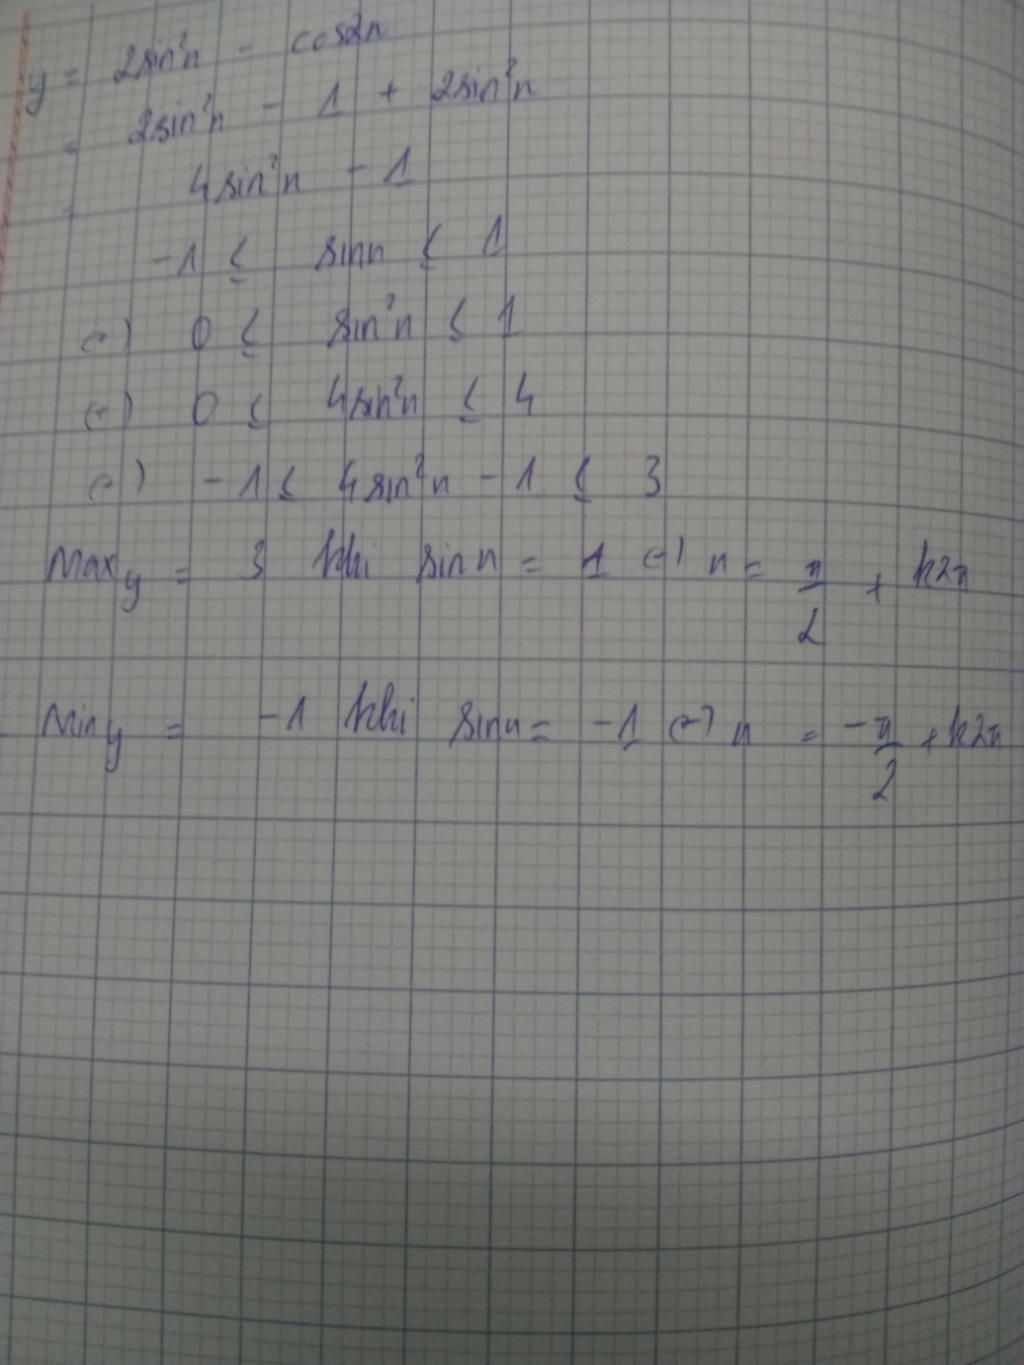 y = 2sin²x - cos2x
= 2sin²x - 1 + 2sin²x
= 4sin²x - 1
-1 ≤ sinx ≤ 1
(=) 0 ≤ sin²x ≤ 1
(=) 0 ≤ 4sin²x ≤ 4
(=) -1 ≤ 4sin²x - 1 ≤ 3
Max y = 3 khi sin x = 1 (=) x = π/2 + k2π
Min y = -1 khi sinx = -1 (=) x = -π/2 + k2π